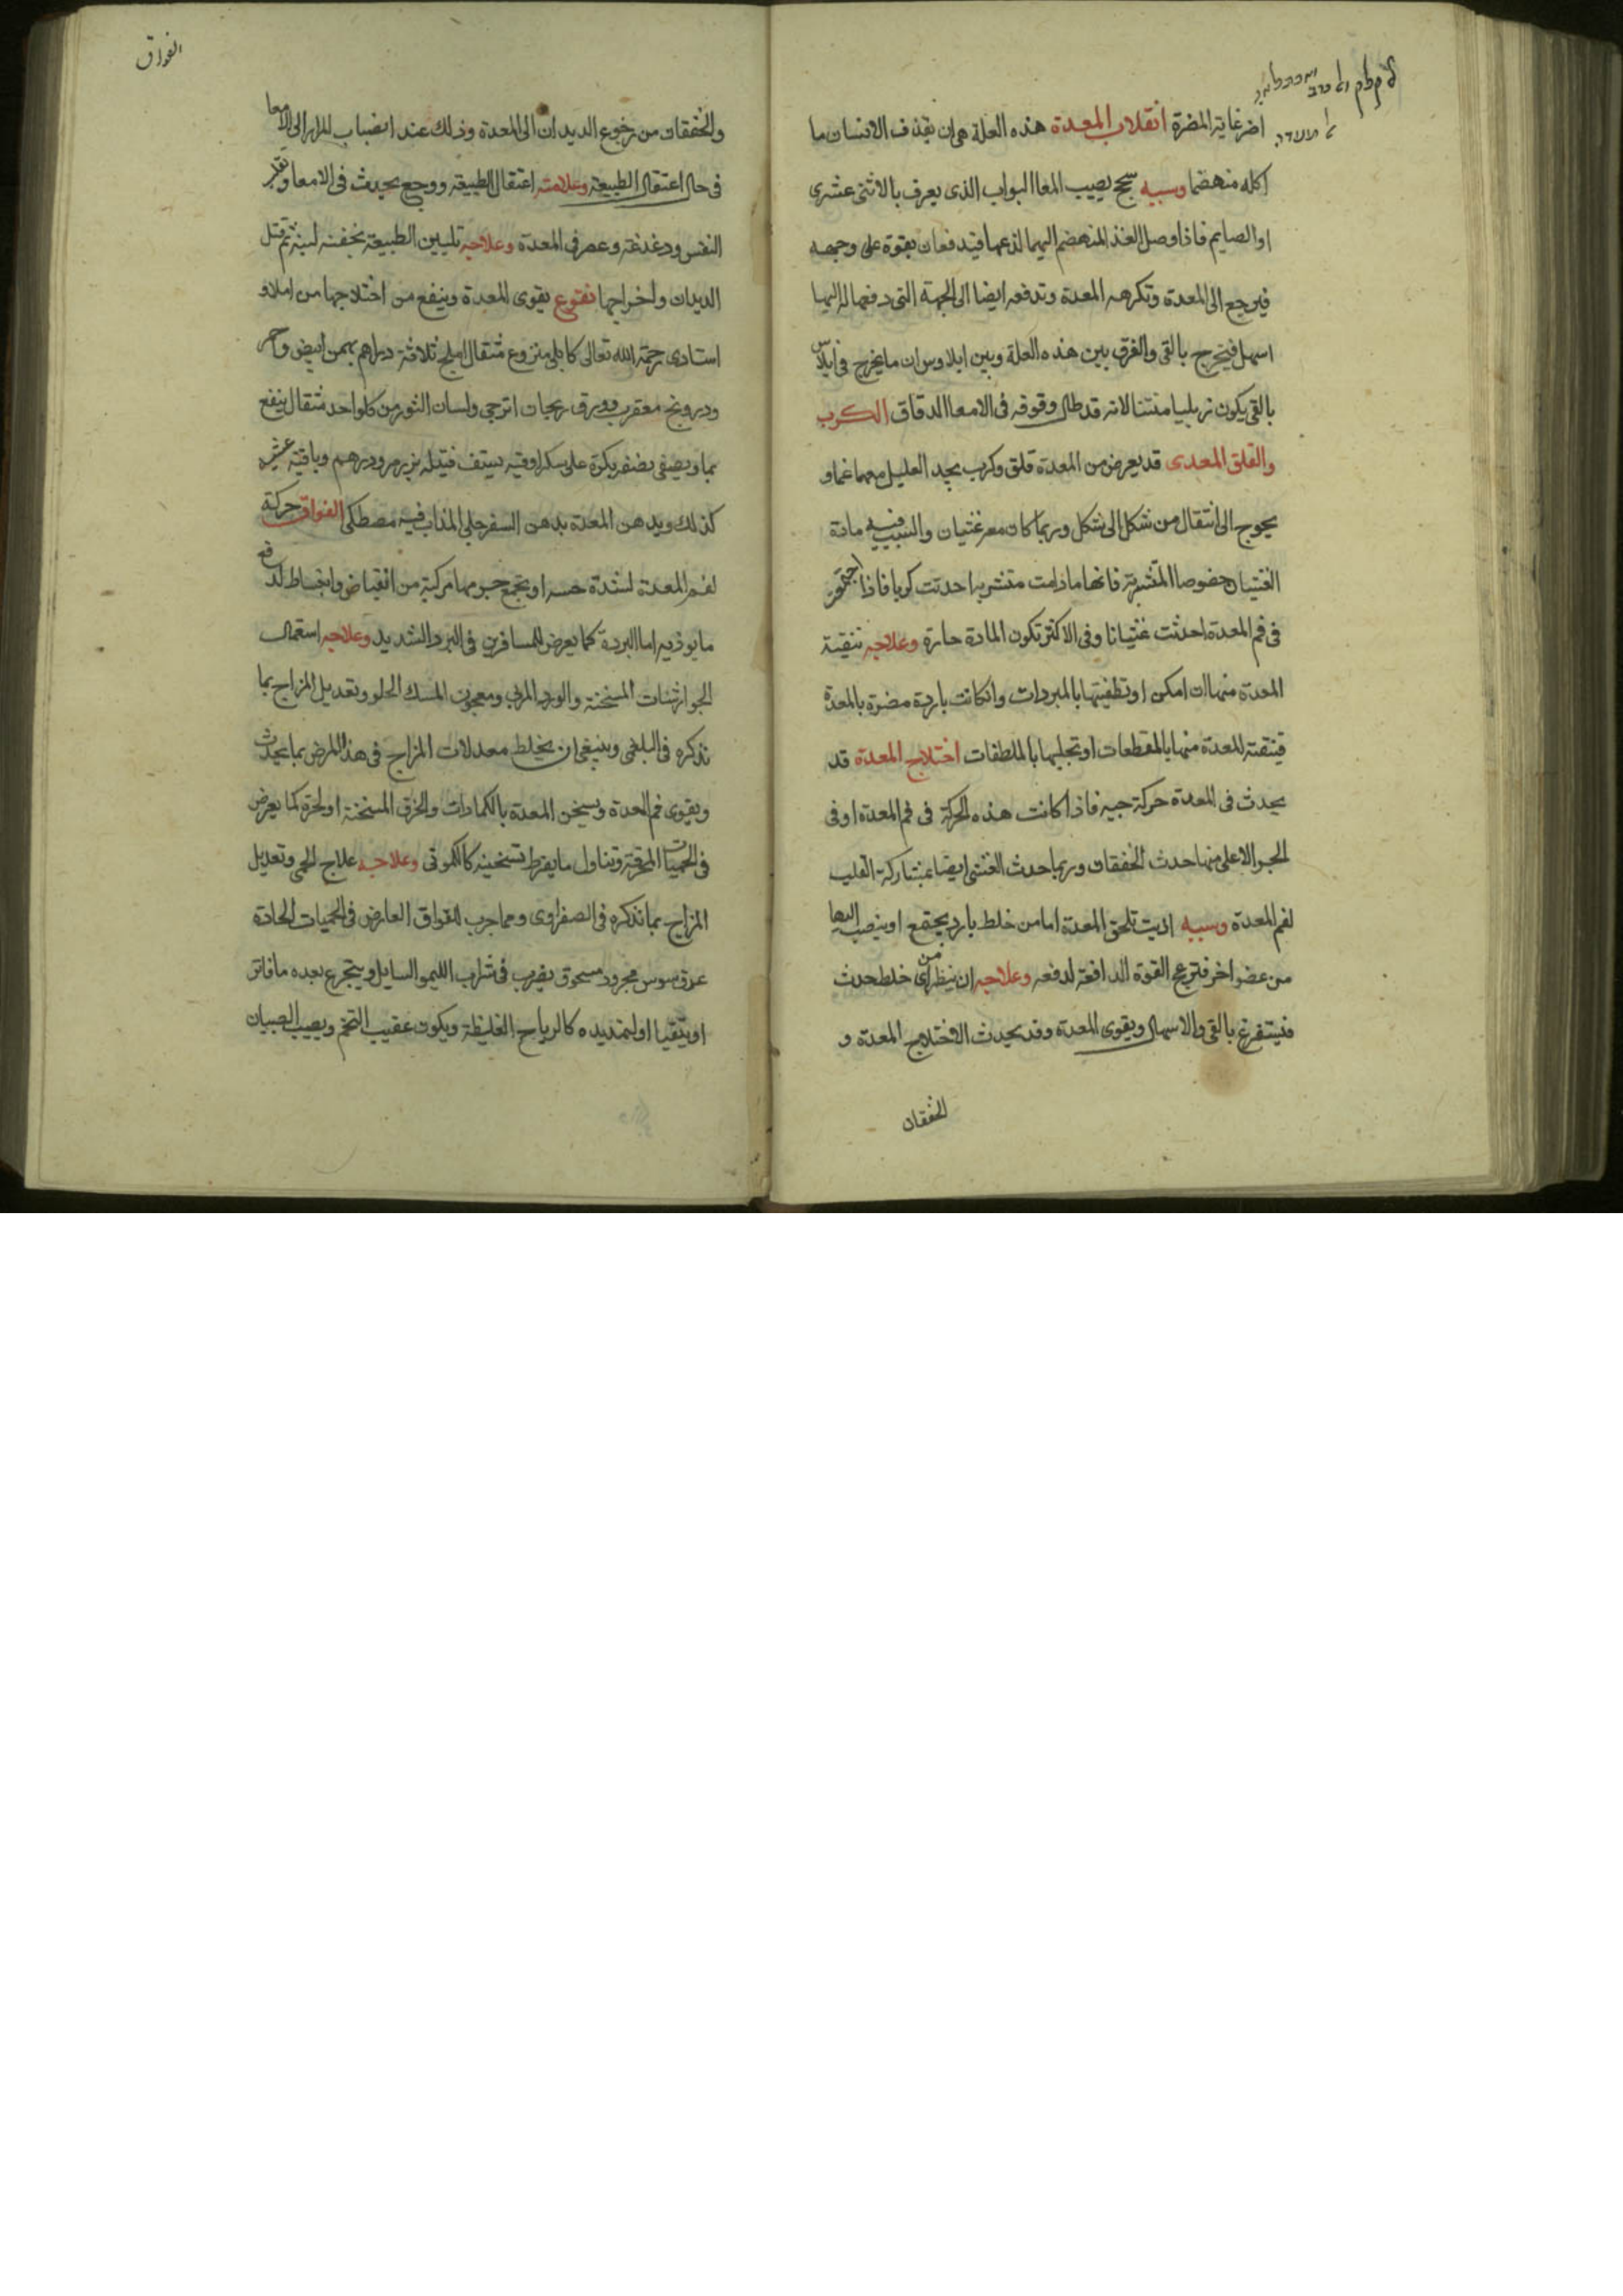 اضر غاية المضرة انقلاب المعدة هذه العلة هى ان يقذف الانسان ما
اكله منهضما وسببه سحج يصيب المعا البواب الذى يعرف بالاثنى عشرى
او الصايم فاذا وصل الغذ المنهضم اليهما لذعهما فيدفعان بقوة على وجهه
فيرجع الى المعدة وتكرهه المعدة وتدفعه ايضا الى الجهة التى دفعها له اليها
اسهل فيخرج بالقى والفرق بين هذه العلة وبين ايلاوس ان ما يخرج فى ايلاوس
بالقى يكون زبليا منتنا لانه قد طال وقوفه فى الامعا الدقاق الكرب
والقلق المعدى قد يعرض من المعدة قلق وكرب يجد العليل معهما غما و
يحوج الى انتقال من شكل الى شكل وربما كان معه غثيان والسبب فيه مادة
الغثيان خصوصا المتشربة فانها ما دامت متشربة احدثت كربا فاذا اجتمعت
فى فم المعدة احدثت غثيانا وفى الاكثر تكون المادة حارة وعلاجه تنقية
المعدة منها ان امكن او تطفيتها بالمبردات وان كانت باردة مضرة بالمعدة
فينقية المعدة منها بالمقطعات او تحليلها بالملطفات اختلاج المعدة قد
يحدث فى المعدة حركة فاذا كانت هذه الحركة فى فم المعدة او فى
الجزو الاعلى منها حدث الخفقان وربما حدث الغشى ايضا بمشاركة القلب
لفم المعدة وسببه اذيت تلحق المعدة اما من خلط بارد يجتمع او ينصب اليها
من عضو اخر فتزعج القوة الدافعة لدفعه وعلاجه ان ينظر من اى خلط حدث
فيستفرغ بالقى والاسهال ويقوى المعدة وقد يحدث الاختلاج المعدة و
الخفقان
الفواق
والخفقان من رجوع الديدان الى المعدة وذلك عند انصباب المرار الى الامعا
فى حال اعتقال الطبيعة وعلامته اعتقال الطبيعة ووجع يحدث فى الامعا
النفس ودغدغة وعصر فى المعدة وعلاجه تليين الطبيعة بحقنه لينة ثم قتل
الديدان واخراجها نقوع يقوى المعدة وينفع من اختلاجها من املاء
استادى رحمة الله تعالى كابلى منزوع مثقال املج ثلاثة دراهم بهمن ابيض واحمر
ودرونج معقرب وورق ريحان اترجى ولسان الثور من كل واحد مثقال ينقع
بما ويصفى بكرة على سكر اوقيه يستف قبله بزر مرو درهم
كذلك ويدهن المعدة بدهن السفرجل المذاب فيه مصطكى الفواق حركة
لفم المعدة لشدة حسه او بجميع جرمها مركبة من انقباض وانبساط لدفع
ما يوذيه اما البردة كما يعرض للمسافرين فى البرد الشديد وعلاجه استعمال
الجوارشنات المسخنة والورد المربى ومعجون المسك الحلو وتعديل المزاج بما
نذكره فى البلغمى وينبغى ان يخلط معدلات المزاج فى هذا المرض بما يحدث
ويقوى فم المعدة ويسخن المعدة بالكمادات والخرق المسخنة او لحرة كما يعرض
فى الحميات المحرقة وتناول ما يفرط تسخينه كالكمونى وعلاجه علاج الحمى وتعديل
المزاج بما نذكره فى الصفراوى ومما جرب للفواق العارض فى الحميات الحادة
عرق سوس مجرود مسحوق يضرب فى شراب الليمو السايل ويتجرع بعده ما فاتر
او يتقيا او لتمديده كالرياح الغليظة ويكون عقيب التخم ويصيب الصبيان